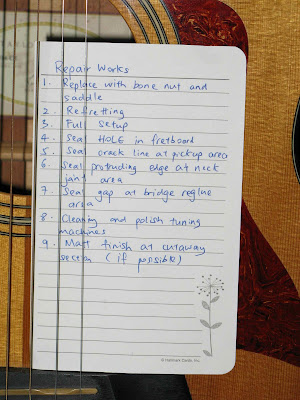 Repair Works
1. Replace with bone nut and
saddle
2. Refretting
3. Full Setup
4. Seal HOLE in fretboard
5. Seal crack line at pickup area
6. Seal protruding edge at neck
joint area
7. Seal gap at bridge reglue
area
8. Cleaning and polish tuning
machines
9. Matt finish at cutaway
section (if possible)
© Hallmark Cards, Inc.